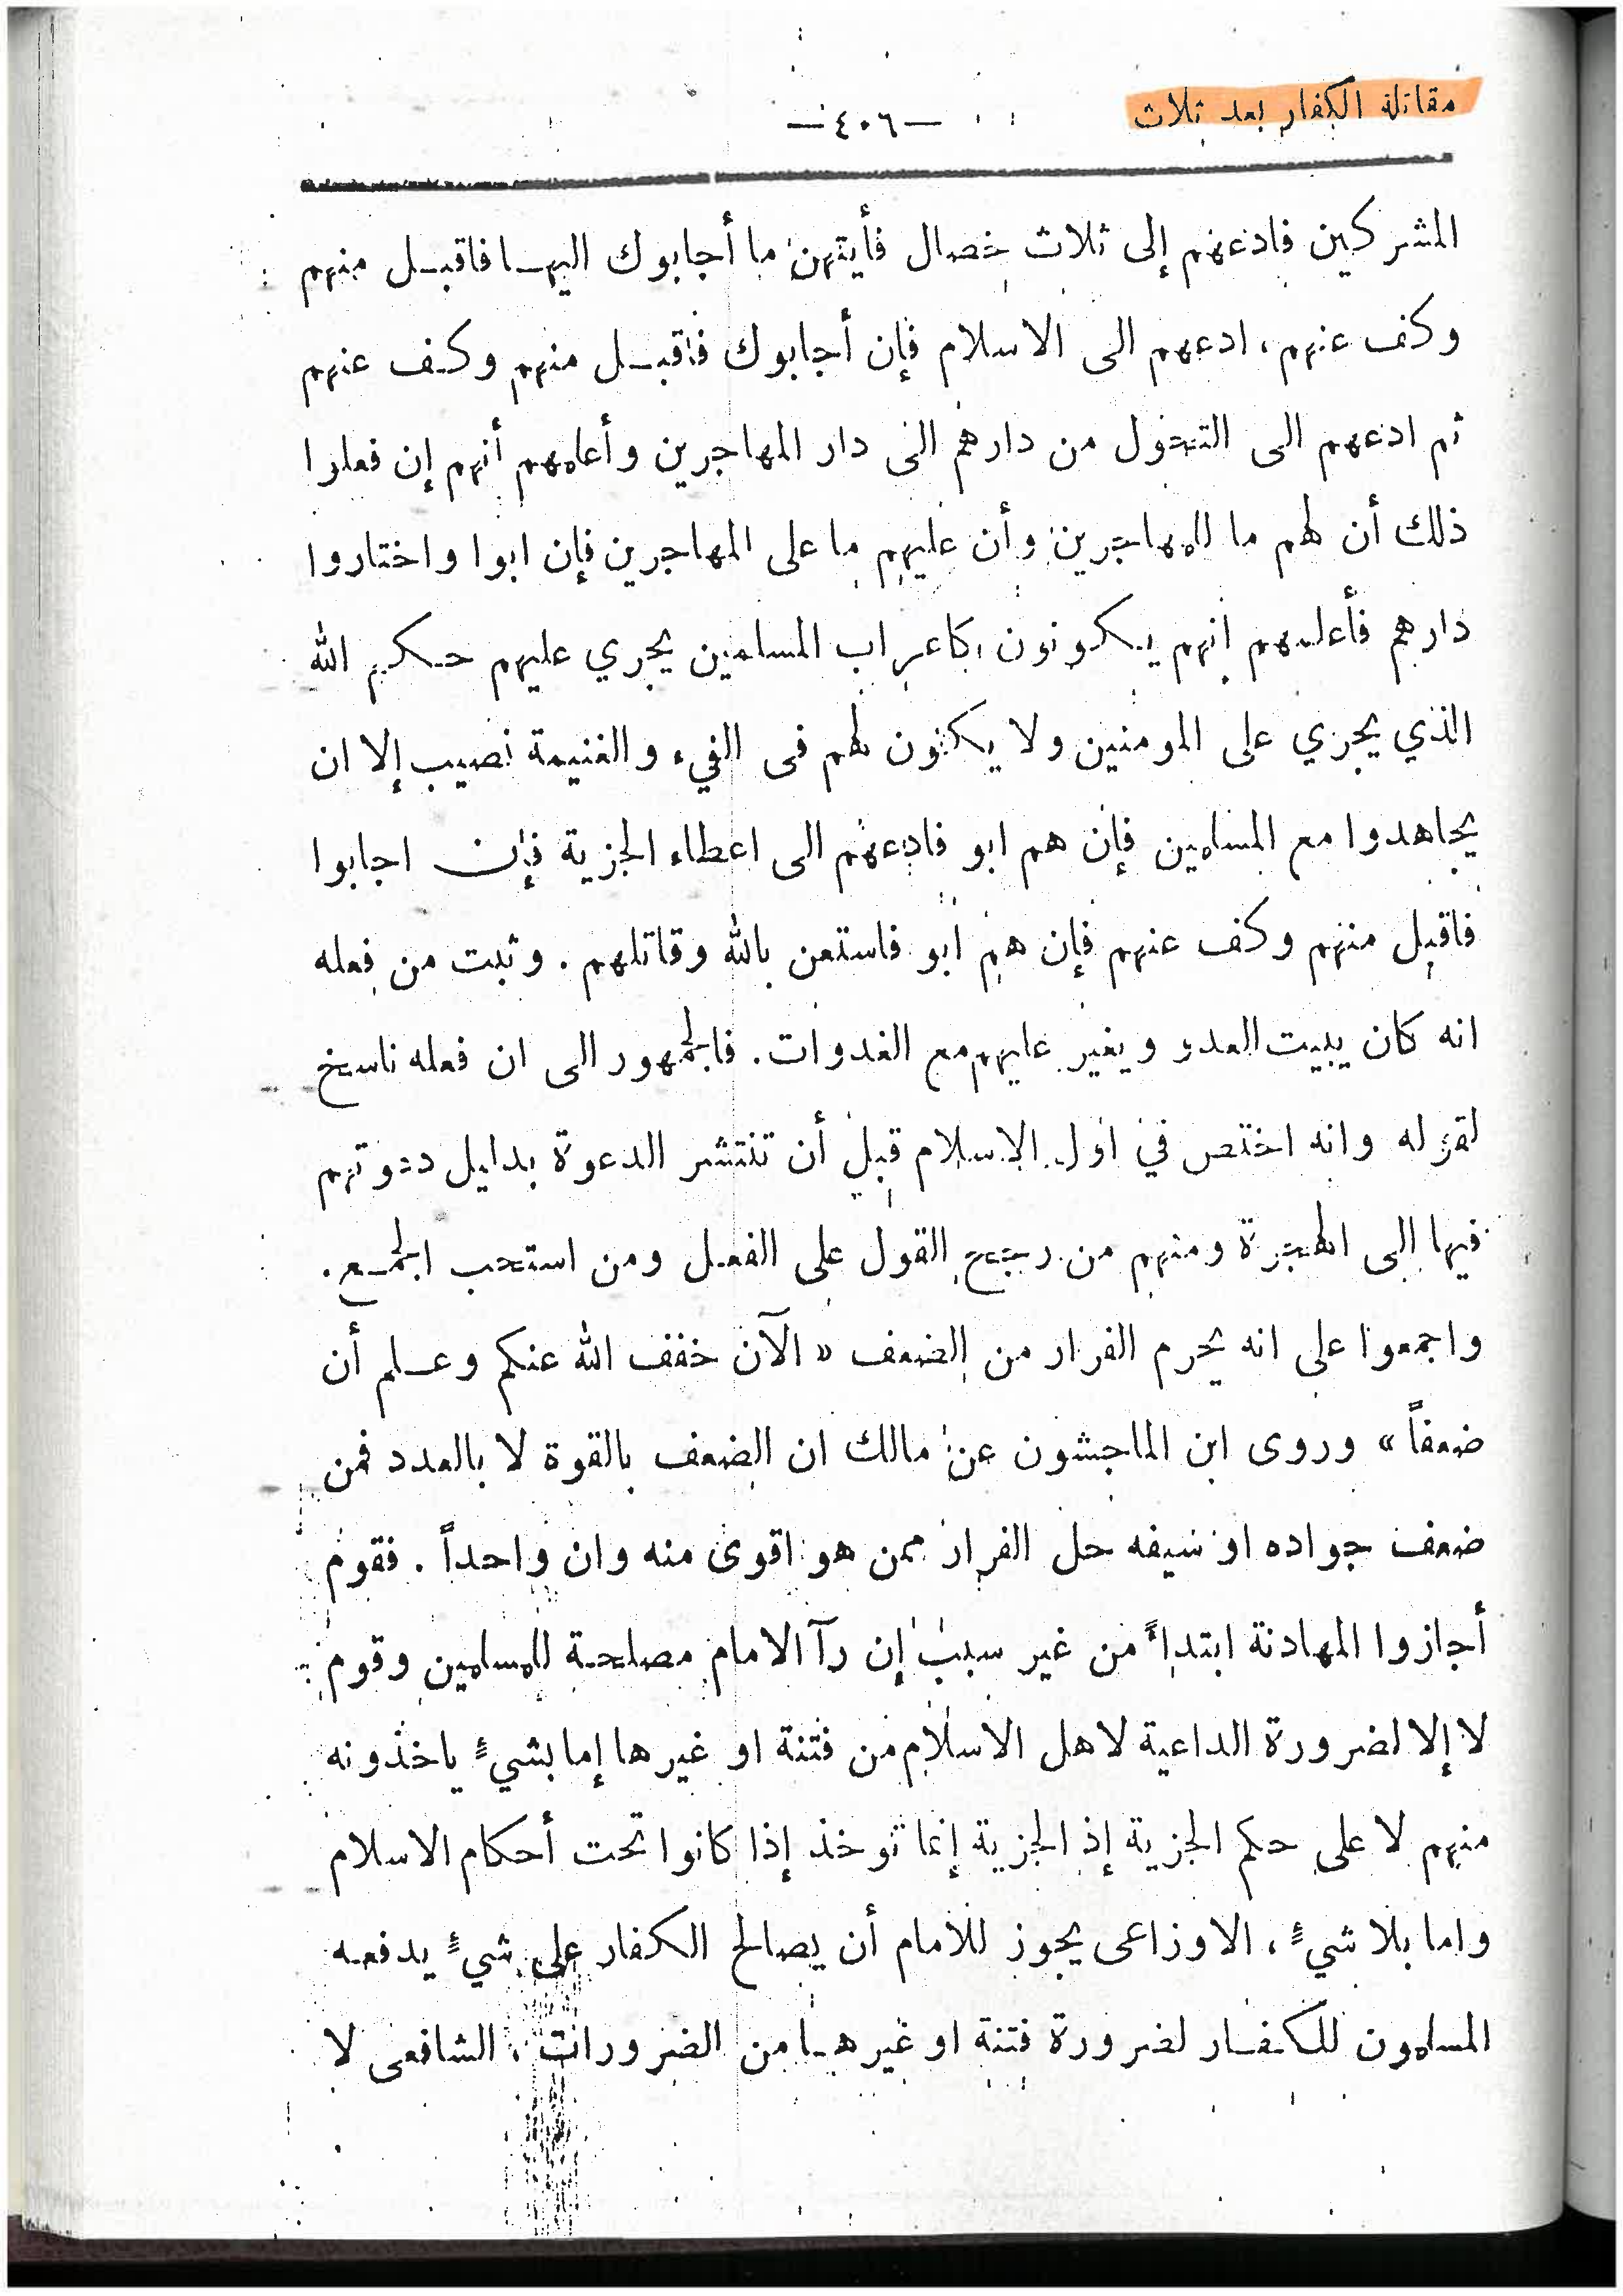 مقاتلة الكفار بعد ثلاث
—٤٠٦—
المشركين فادعهم إلى ثلاث خصال فأيتهن ما أجابوك اليها فاقبل منهم
وكف عنهم، ادعهم الى الاسلام فإن أجابوك فاقبل منهم وكف عنهم
ثم ادعهم الى التحول من دارهم الى دار المهاجرين وأعلمهم أنهم إن فعلوا
ذلك أن لهم ما للمهاجرين وأن عليهم ما على المهاجرين فإن ابوا واختاروا
دارهم فأعلمهم انهم يكونون كاعراب المسلمين يجري عليهم حكم الله
الذي يجري على المومنين ولا يكون لهم فى الفيء والغنيمة نصيب إلا ان
يجاهدوا مع المسلمين فإن هم ابو فادعهم الى اعطاء الجزية فإن اجابوا
فاقبل منهم وكف عنهم فإن هم ابو فاستعن بالله وقاتلهم. وثبت من فعله
انه كان يبيت العدو ويغير عليهم مع الغدوات. فالجمهور الى ان فعله ناسخ
لقوله وانه اختص في اول الاسلام قبل أن تنتشر الدعوة بدليل دعوتهم
فيها الى الهجرة ومنهم من رجح القول على الفعل ومن استحب الجمع.
واجمعوا على انه يحرم الفرار من الضعف « الآن خفف الله عنكم وعلم أن
ضعفاً » وروى ابن الماجشون عن مالك ان الضعف بالقوة لا بالعدد فمن
ضعف جواده او سيفه حل الفرار ممن هو اقوى منه وان واحداً. فقوم
أجازوا المهادنة ابتداءً من غير سبب إن رآ الامام مصلحة للمسلمين وقوم
لا إلا لضرورة الداعية لاهل الاسلام من فتنة او غيرها إما بشيءٍ ياخذونه
منهم لا على حكم الجزية إذ الجزية إنما توخذ إذا كانوا تحت أحكام الاسلام
واما بلا شيءٍ، الاوزاعى يجوز للامام أن يصالح الكفار على شيءٍ يدفعه
المسلمون للكفار لضرورة فتنة او غيرها من الضرورات، الشافعى لا